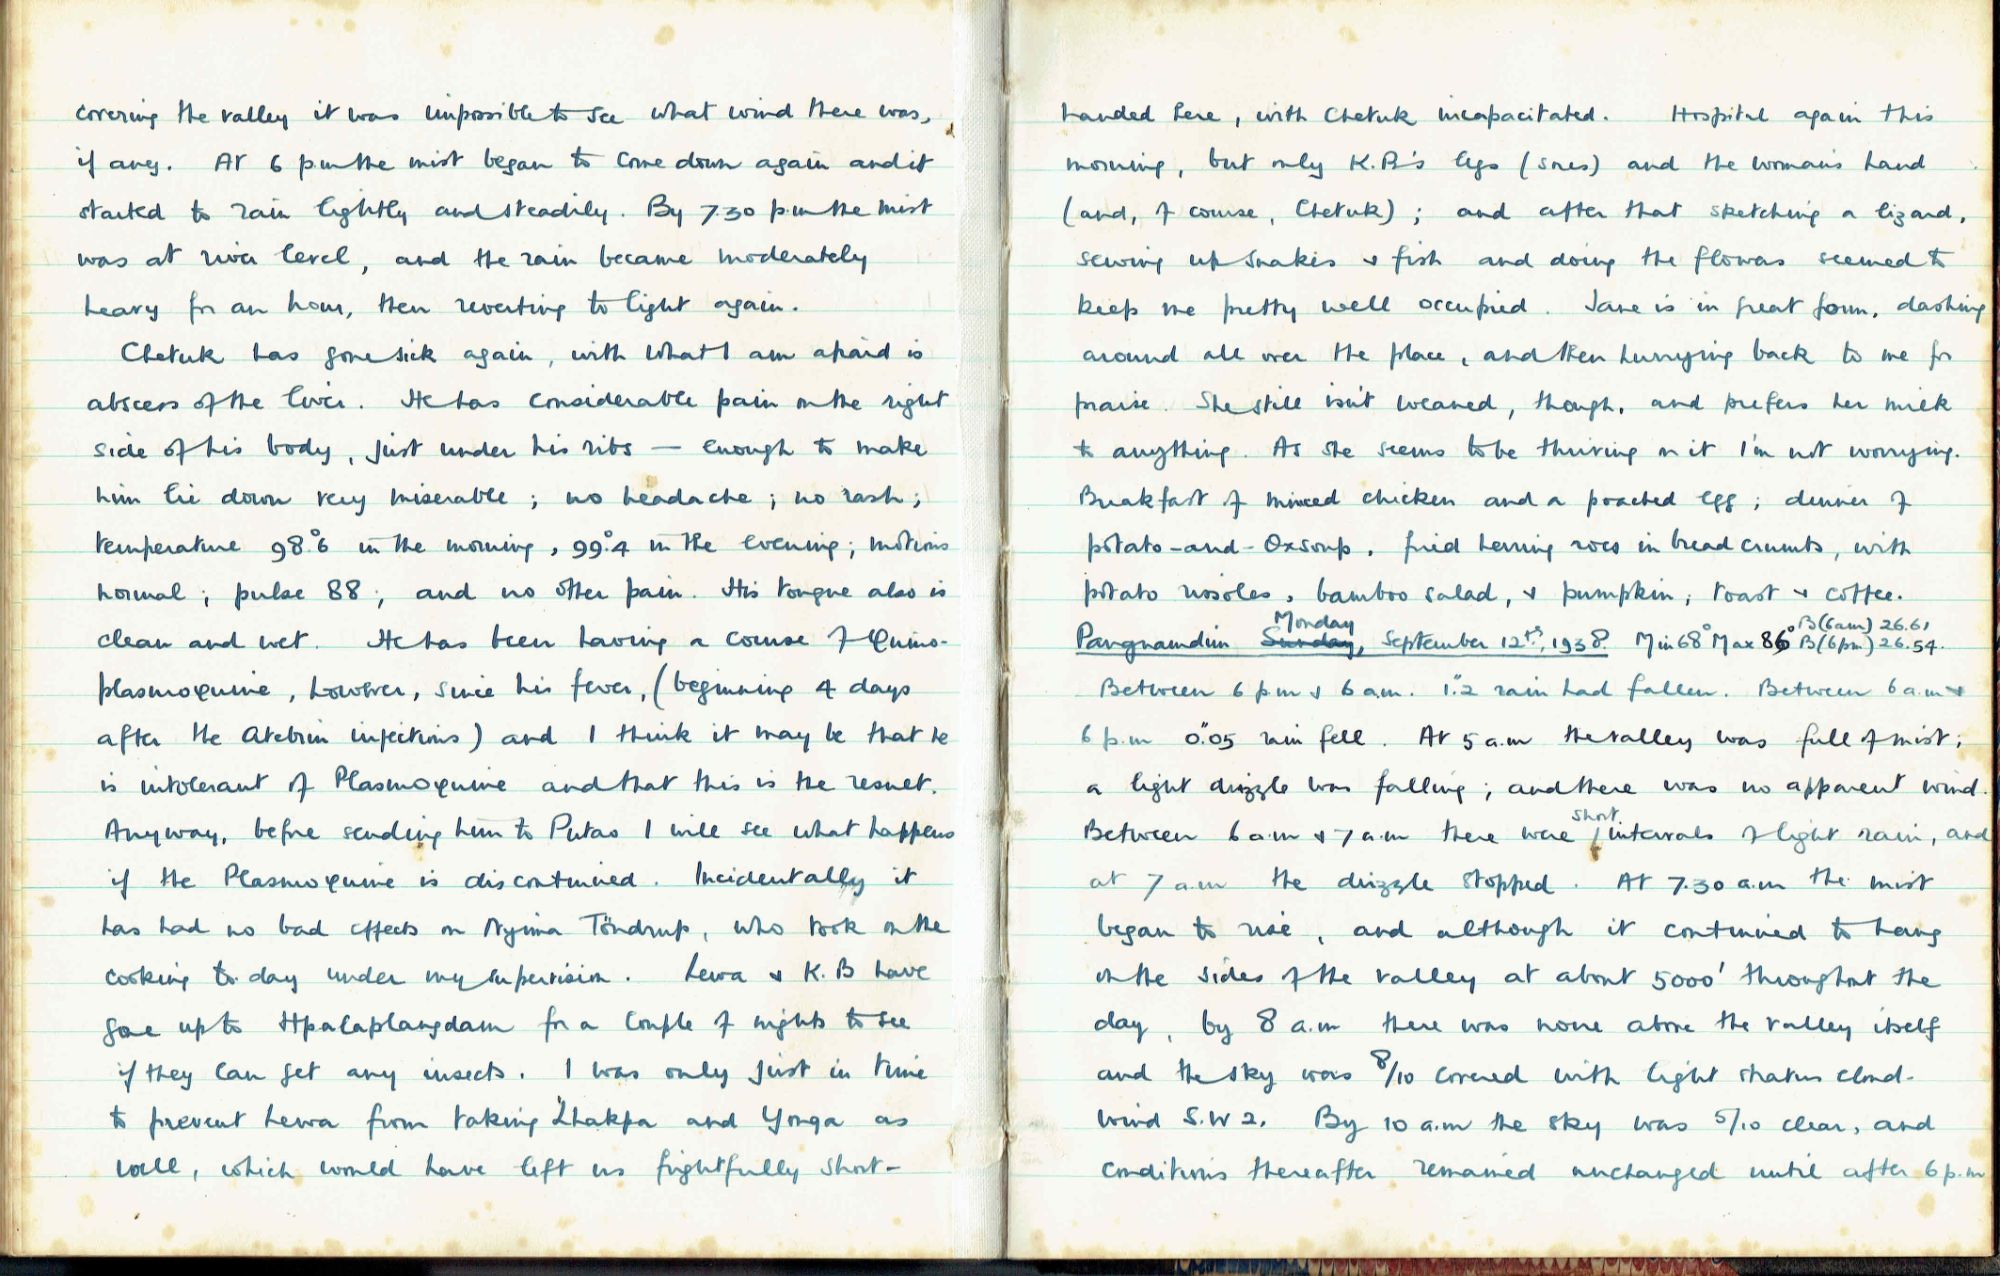 covering the valley it was impossible to see what wind there was,
if any. At 6 p.m the mist began to come down again and it
started to rain lightly and steadily. By 7.30 p.m the mist
was at river level, and the rain became moderately
heavy for an hour, then reverting to light again.
Chetuk has gone sick again, with what I am afraid is
abscess of the liver. He has considerable pain on the right
side of his body, just under his ribs — enough to make
him lie down very miserable; no headache; no rash;
temperature 98°.6 in the morning, 99°.4 in the evening; motions
normal; pulse 88; and no other pain. His tongue also is
clean and wet. He has been having a course of Quino-
plasmoquine, however, since his fever, (beginning 4 days
after the Atebrin injections) and I think it may be that he
is intolerant of Plasmoquine and that this is the result.
Anyway, before sending him to Putao I will see what happens
if the Plasmoquine is discontinued. Incidentally it
has had no bad effects on Nyima Töndrup, who took on the
cooking to-day under my supervision. Lewa & K.B have
gone up to Hpalaplangdam for a couple of nights to see
if they can get any insects. I was only just in time
to prevent Lewa from taking Lhakpa and Yonga as
well, which would have left us frightfully short-
handed here, with Chetuk incapacitated. Hospital again this
morning, but only K.B's legs (sores) and the woman's hand
(and, of course, Chetuk); and after that sketching a lizard,
sewing up snakes & fish and doing the flowers seemed to
keep me pretty well occupied. Jane is in great form, dashing
around all over the place, and then hurrying back to me for
praise. She still isn't weaned, though, and prefers her milk
to anything. As she seems to be thriving on it I'm not worrying.
Breakfast of minced chicken and a poached egg; dinner of
potato-and-Oxsoup, fried herring roes in bread crumbs, with
potato rissoles, bamboo salad, & pumpkin; toast & coffee.
Pangnamdim Sunday, Monday September 12th, 1938. Min 68° Max 86° B(6am) 26.61 B(6pm) 26.54.
Between 6 p.m & 6 a.m. 1".2 rain had fallen. Between 6 a.m &
6 p.m 0".05 rain fell. At 5 a.m the valley was full of mist;
a light drizzle was falling; and there was no apparent wind.
Between 6 a.m & 7 a.m there were short intervals of light rain, and
at 7 a.m the drizzle stopped. At 7.30 a.m the mist
began to rise, and although it continued to hang
on the sides of the valley at about 5000' throughout the
day, by 8 a.m there was none above the valley itself
and the sky was 8/10 covered with light stratus cloud.
Wind S.W 2. By 10 a.m the sky was 5/10 clear, and
conditions thereafter remained unchanged until after 6 p.m